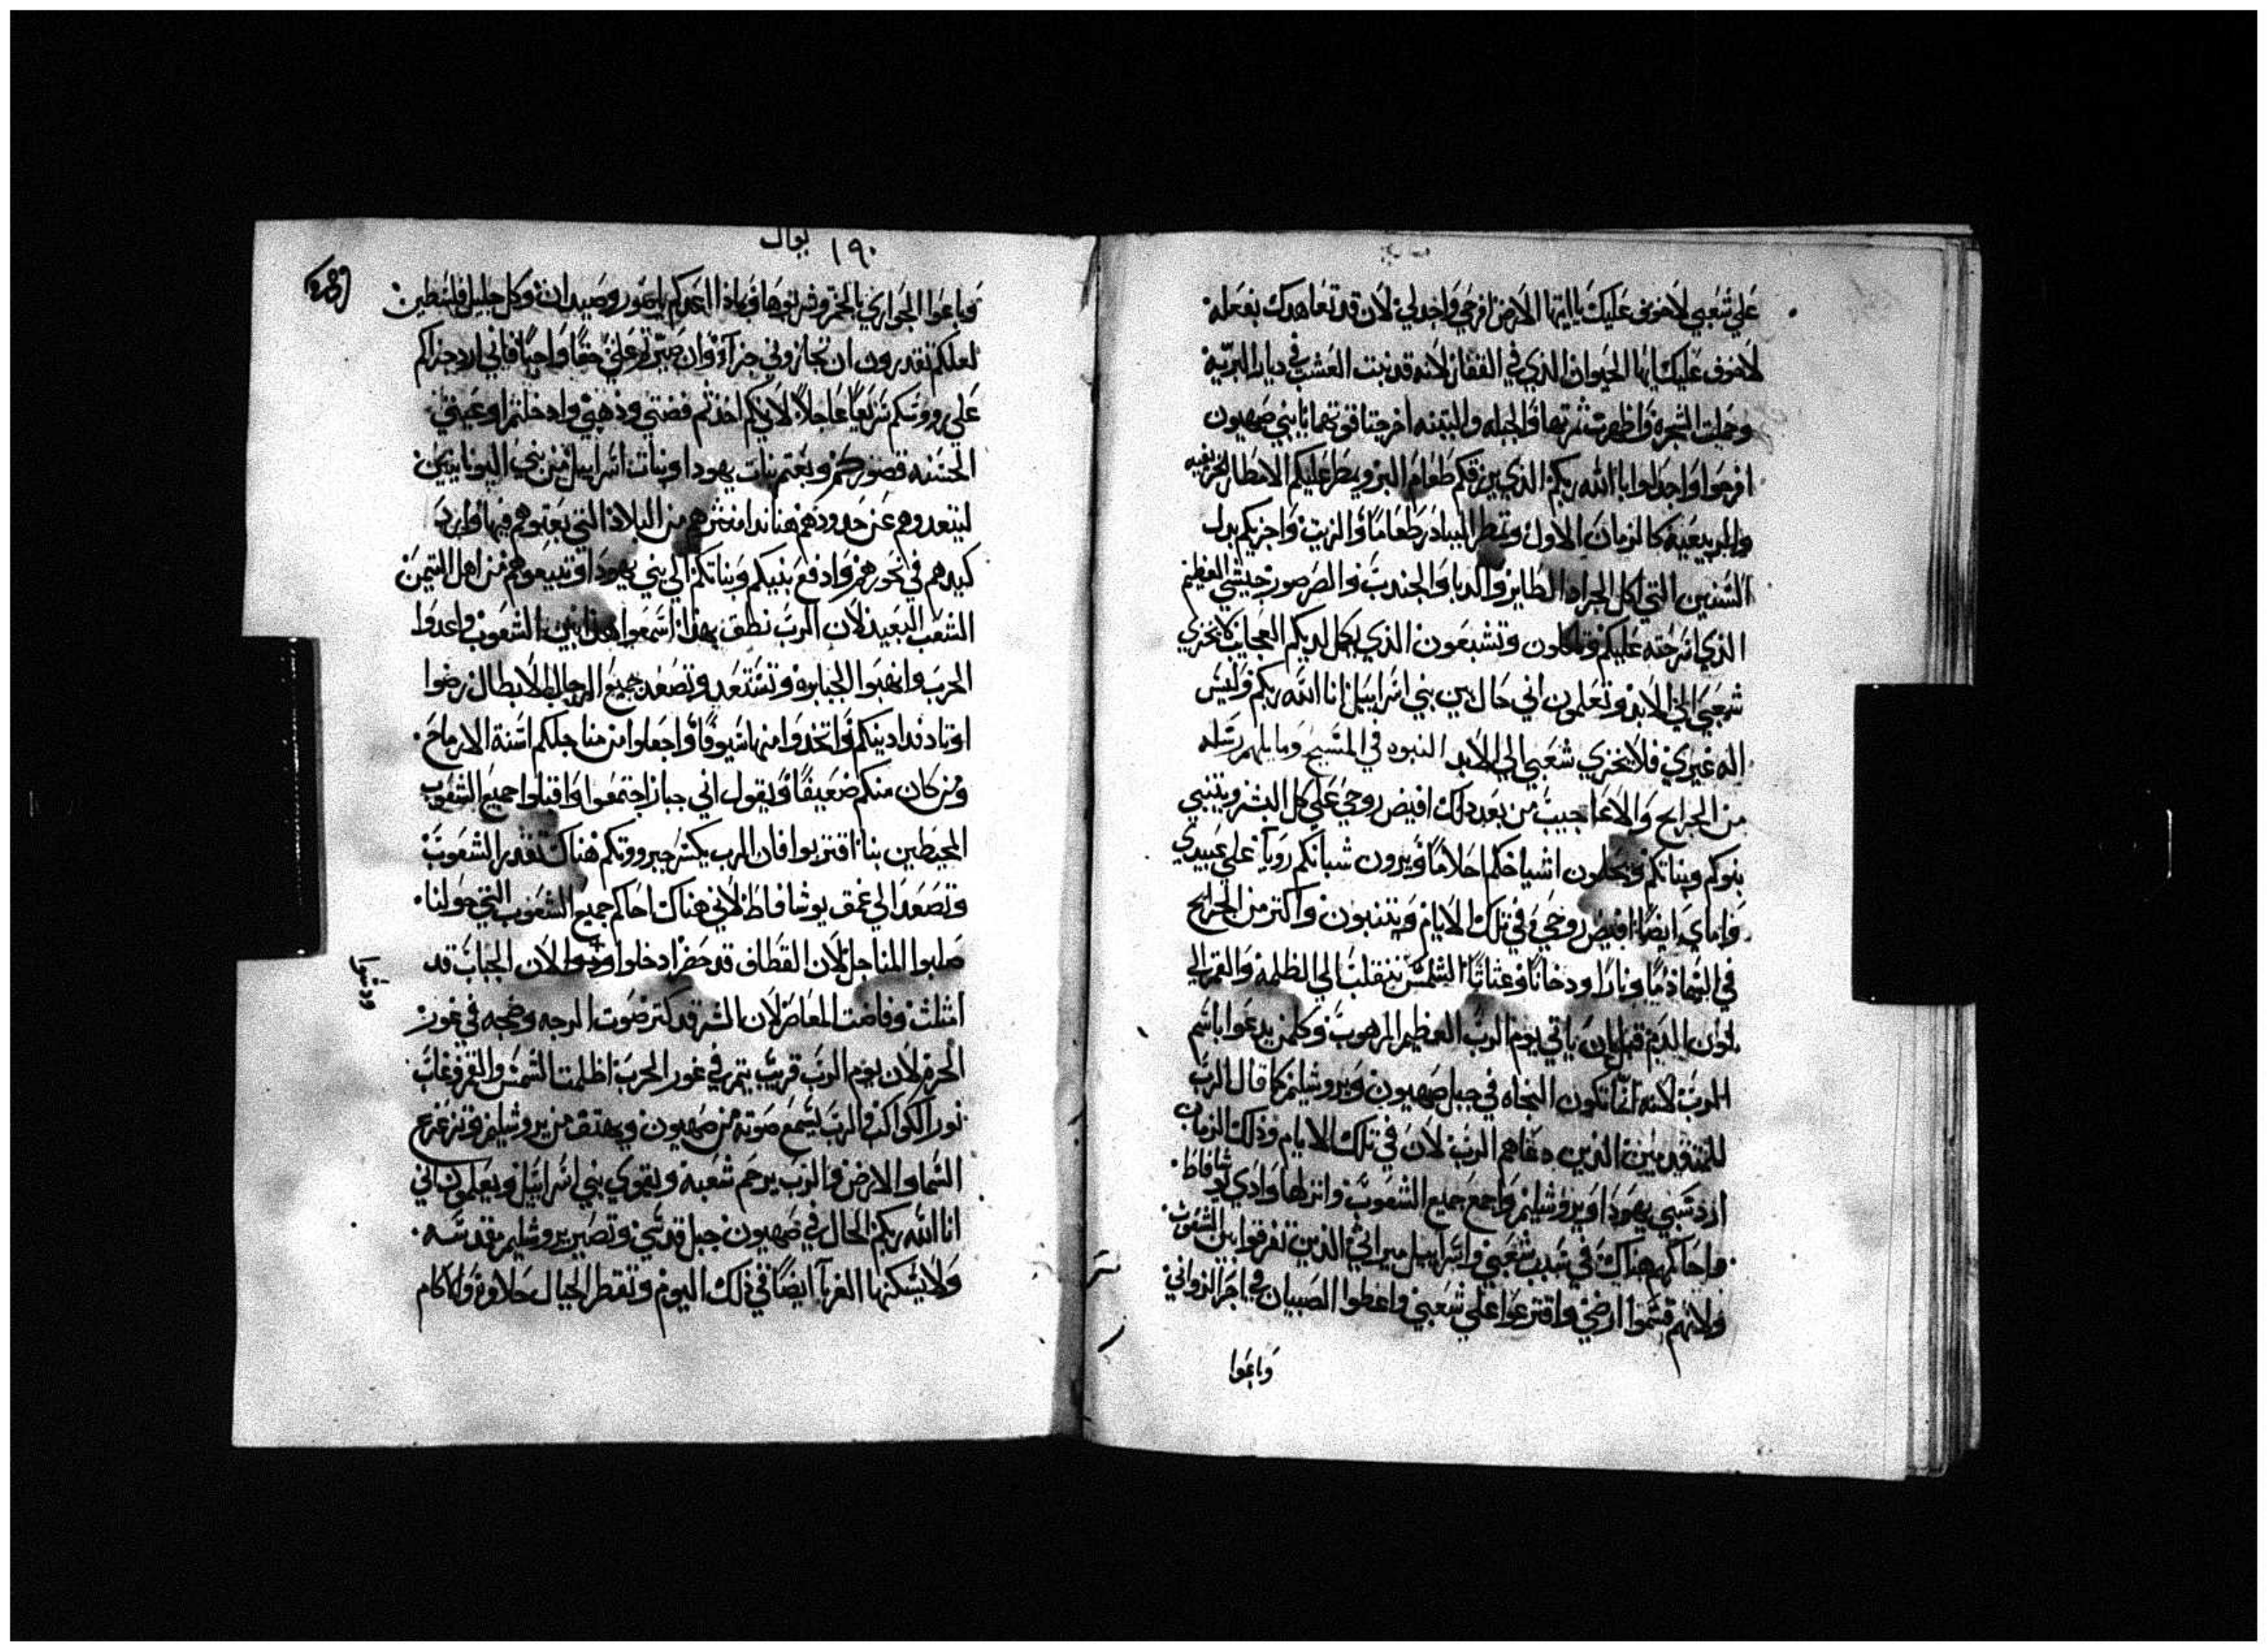 علي شعبي لا خوف عليك يا ايتها الارض افرحي واجدلي لان قد تعاهدك بفعله
لا خوف عليك ايها الحيوان الذي في القفار لانه قد نبت العشب في ديار البرية
وحملت الشجره واظهرت ثمرتها والحبله والتينه اخرجتا قوتهما يا بني صهيون
افرحوا واجدلوا بالله ربكم الذي يرزقكم طعام البر ويمطر عليكم الامطار الخريفيه
والربيعيه كالزمان الاول وتمطر البيادر طعاما والزيت واجزيكم بدل
السنين التي اكل الجراد الطاير والدبا والجندب والصرصور جيشي العظيم
الذي سرحته عليكم وتاكلون وتشبعون الذي يكمل لديكم العجايب كالخزي
شعبي الي الابد وتعلمون اني حال بين بني اسراييل انا الله ربكم وليس
اله غيري فلا يخزي شعبي الي الابد النبوه في المسيح وما يلهم رسله
من الجرايح والاعاجيب من بعد ذلك افيض روحي علي كل البشر ويتنبي
بنوكم وبناتكم ويحلمون اشياخكم احلاما ويرون شبانكم رويا علي عبيدي
واماي ايضا افيض روحي في تلك الايام ويتنبون واكتر من الجرايح
في السما دما ونارا ودخانا وعثانا الشمس تنقلب الي الظلمة والقمر الي
لون الدم قبل ان ياتي يوم الرب العظيم المرهوب وكلمن يدعوا باسم
الرب لانه انما تكون النجاه في جبل صهيون ويروشليم كما قال الرب
للمتقدمين الذين دعاهم الرب لان في تلك الايام وذلك الزمان
ارد سبي يهودا ويروشليم واجمع جميع الشعوب وانزلها وادي يوشافاط
واحاكمهم هناك في سبب شعبي واسراييل ميراثي الذين تفرقوا بين الشعوب
ولانهم قسموا ارضي واقترعوا علي شعبي واعطوا الصبيان في اجر الزواني
وباعوا
١٩٠ يوال
وباعوا الجواري بالخمر وشربوها وماذا اعدكم يا صور وصيدان وكل جليل فلسطين
لعلكم تقدرون ان تجازوني جزاء وان صيرتم علي حقا واجبا فاني ارد جزاكم
علي رووسكم سريعا عاجلا لانكم اخذتم فضتي وذهبي وادخلتم اوعيتي
الحسنه قصوركم وبعتم بنات يهودا وبنات اسراييل من بني اليونانيين
ليبعدوهم عن حدودهم هانذا منشرهم من البلاد التي بعتوهم فيها وارد
كيدهم في نحورهم وادفع بنيكم وبناتكم الي بني يهودا وتبيعوهم من اهل التيمن
الشعب البعيد لان الرب نطق بهذا اسمعوا هذا بين الشعوب واعدوا
الحرب وانهبوا الجبابره وتستعد وتصعد جميع الرجال الابطال رضوا
اوتاد فدادينكم واتخدوا منها سيوفا واجعلوا من مناجلكم اسنة الارماح
ومن كان منكم ضعيفا ويقول اني جبار اجتمعوا واقبلوا جميع الشعوب
المحيطين بنا اقتربوا فان الرب يكسر جبروتكم هناك تقدر الشعوب
وتصعد الي عمق يوشافاط لاني هناك احاكم جميع الشعوب التي حولنا
صلبوا المناجل لان القطاف قد حضر ادخلوا لان الجباب قد
امتلت وفاضت المعاصر لان الشر قد كتر صوت الرجه وضجه في غور
الحرم لان يوم الرب قريب يتم في غور الحرب اظلمت الشمس والقمر وغاب
نور الكواكب والرب يسمع صوته من صهيون ويهتف من يروشليم وتتزعزع
السما والارض والرب يرحم شعبه ويقوي بني اسراييل ويعلمون اني
انا الله ربكم الحال في صهيون جبل قدسي وتصير يروشليم مقدسه
ولا يسكنها الغربآ ايضا في ذلك اليوم وتقطر الجبال حلاوة والاكام